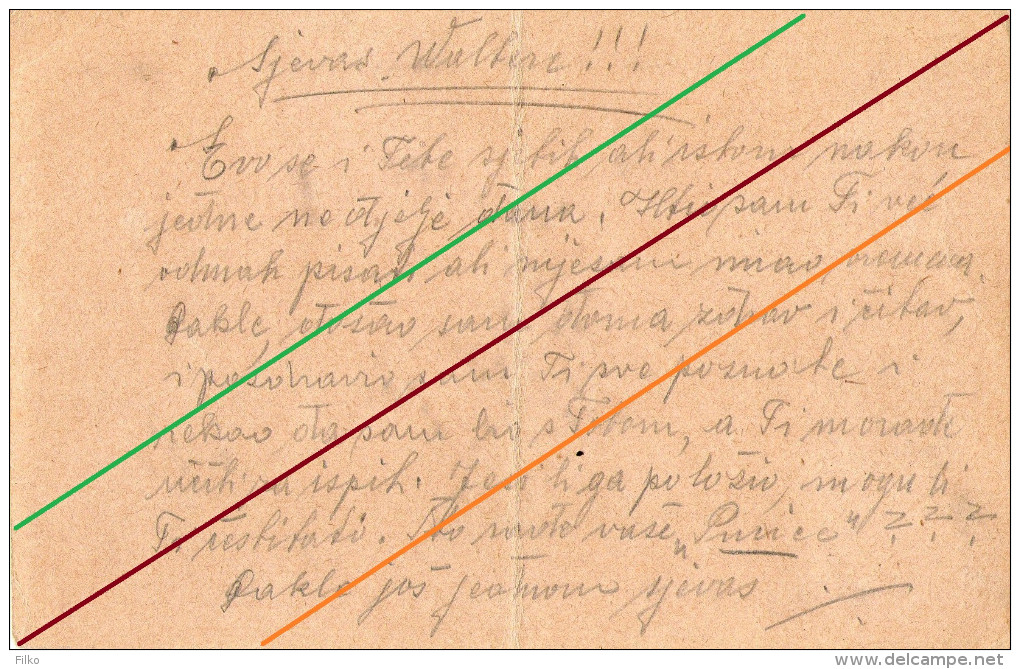 Sjevas Walter!!!
Evo se i Tebe sjetih ali istom nakon
jedne nedjelje dana. Htio sam Ti već
odmah pisati ali nijesam imao vremena.
Dakle, došao sam doma zdrav i čitav,
i pozdravio sam Ti sve poznate i
rekao da sam bio s Tobom, a Ti moraš
učiti za ispit. Jesi li ga položio, mogu li
Ti čestitati. Što rade vaše „ " ? ? ?
Dakle još jednom sjevas
Filko
delcampe.net